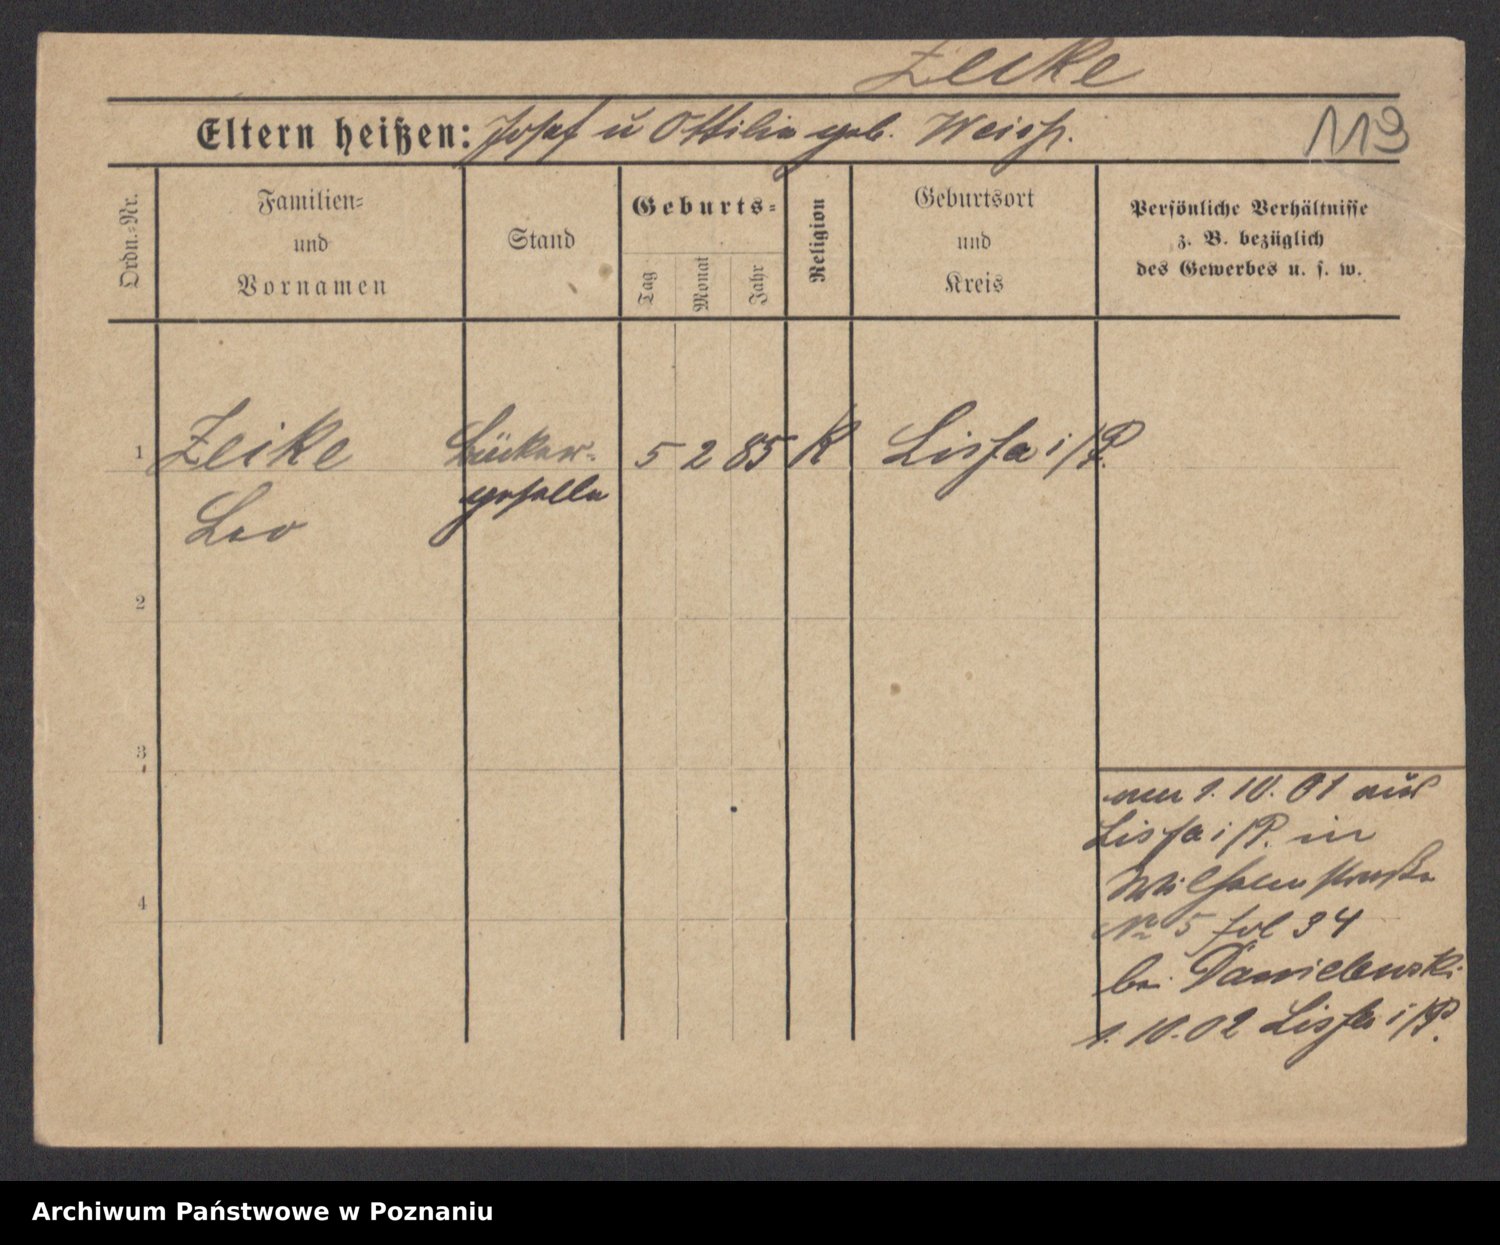 Zeike
Eltern heißen: Josef u Ottilie geb. Weiss.
113
Ordn.-Nr.
Familien- und Vornamen
Stand
Geburts-
Tag
Monat
Jahr
Religion
Geburtsort und Kreis
Persönliche Verhältnisse
z. B. bezüglich
des Gewerbes u. s. w.
1 Zeike Bäcker- 5 2 85 K Lissa i/P.
Leo geselle
2
3
4
am 1.10.01 aus
Lissa i/P. in
Wilhelmstraße
No 5 fol 34
bei Danielewski
1.10.02 Lissa i/P.
Archiwum Państwowe w Poznaniu